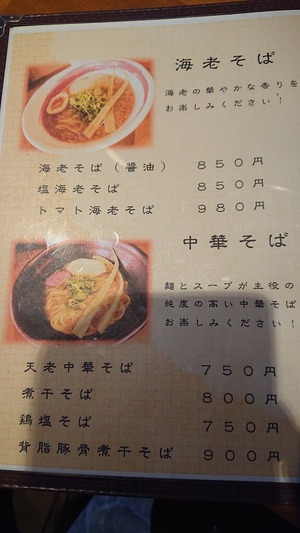 海老そば
海老の華やかな香りを
お楽しみください！
海老そば（醤油） ８５０円
塩海老そば ８５０円
トマト海老そば ９８０円
中華そば
麺とスープが主役の
純度の高い中華そば
お楽しみください！
天老中華そば ７５０円
煮干そば ８００円
鶏塩そば ７５０円
背脂豚骨煮干そば ９００円